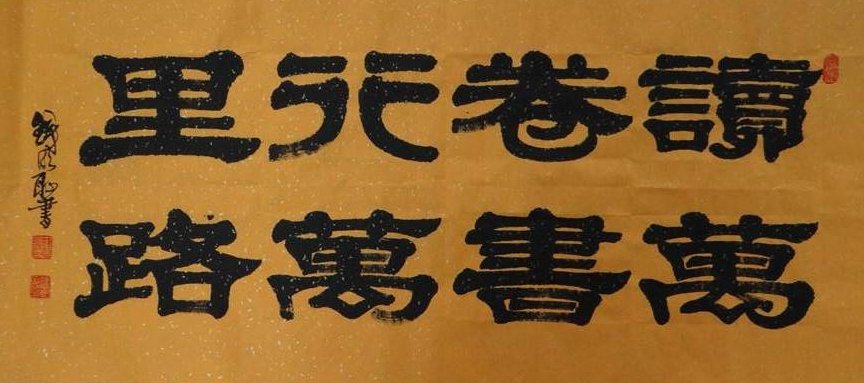 讀萬
卷書
行萬
里路
書